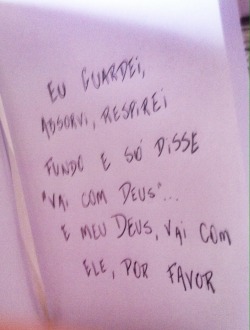 EU GUARDEI,
ABSORVI, RESPIREI
FUNDO E SÓ DISSE
"VAI COM DEUS"...
E MEU DEUS, VAI COM
ELE, POR FAVOR